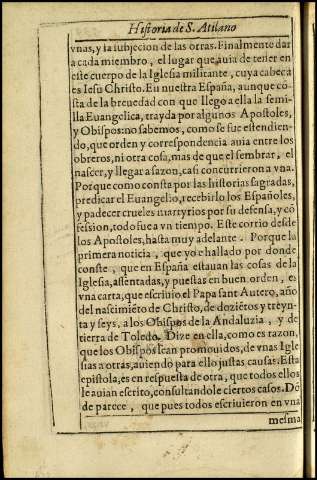 Historia de S. Atilano
vnas, y la subjecion de las otras. Finalmente dar
a cada miembro, el lugar que auia de tener en
este cuerpo de la Iglesia militante, cuya cabeça
es Iesu Christo. En nuestra España, aunque cõ
sta de la breuedad con que llego a ella la semi-
lla Euangelica, trayda por algunos Apostoles,
y Obispos: no sabemos, como se fue estendien-
do, que orden y correspondencia auia entre los
obreros, ni otra cosa, mas de que el sembrar, el
nascer, y llegar a sazon, casi concurrieron a vna.
Porque como consta por las historias sagradas,
predicar el Euangelio, recebirlo los Españoles,
y padecer crueles martyrios por su defensa, y cõ
fession, todo fue a vn tiempo. Este corrio desde
los Apostoles, hasta muy adelante. Porque la
primera noticia, que yo he hallado por donde
conste, que en España estauan las cosas de la
Iglesia, assentadas, y puestas en buen orden, es
vna carta, que escriuio el Papa sant Autero, año
del nascimiẽto de Christo, de doziẽtos y treyn-
ta y seys, a los Obispos de la Andaluzia, y de
tierra de Toledo. Dize en ella, como es razon,
que los Obispos sean promouidos, de vnas Igle
sias a otras, auiendo para ello justas causas. Esta
epistola, es en respuesta de otra, que todos ellos
le auian escrito, consultandole ciertos casos. Dõ
de parece, que pues todos escriuieron en vna
mesma